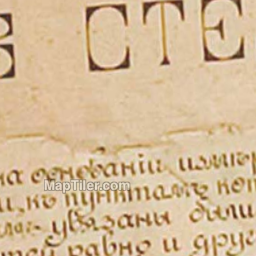 СТЕ
на основаніи измѣр
къ пунктамъ кот
увязаны были
равно и друг
MapTiler.com